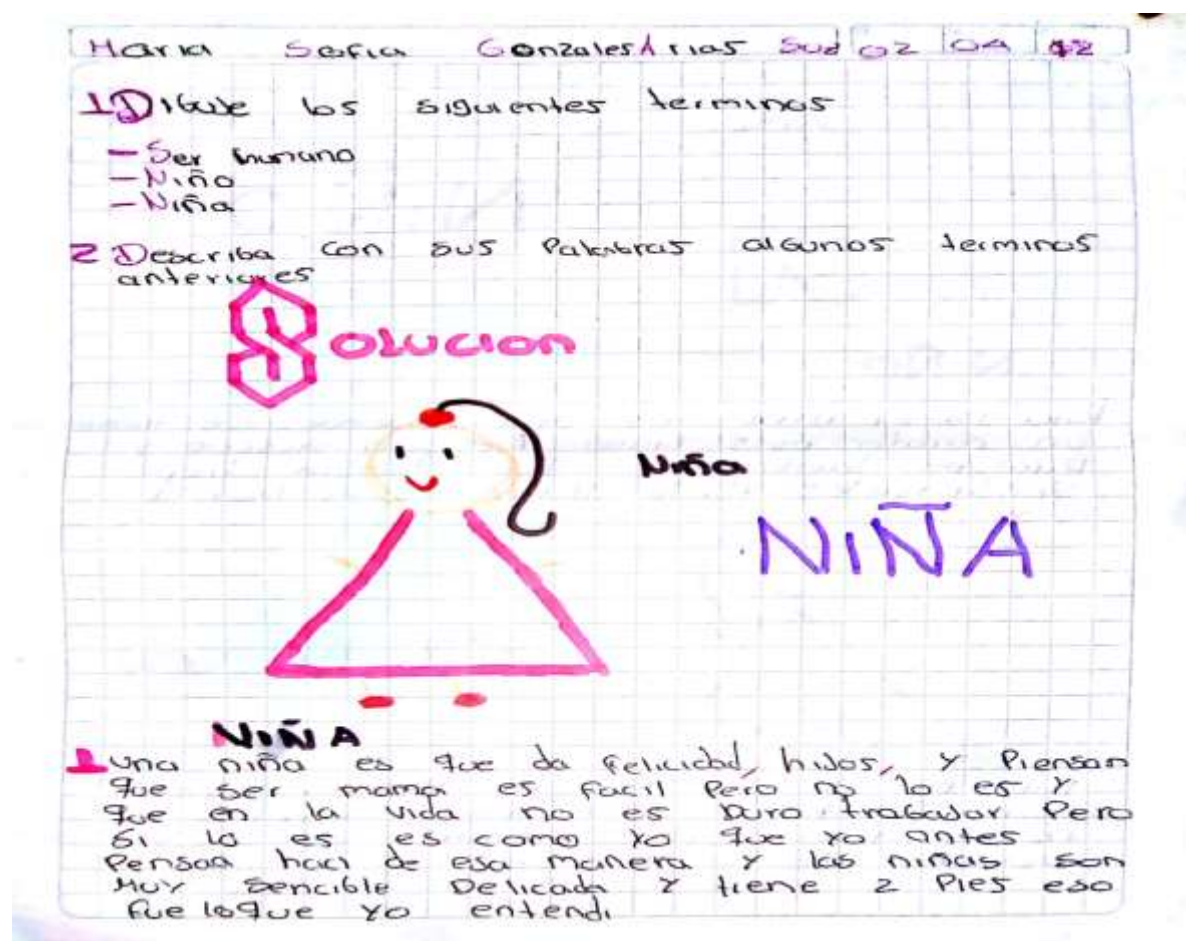 Maria Sofia Gonzales Arias Sud 02 04 12
1 Dibuje los siguientes terminos
- Ser humano
- Niño
- Niña
2 Describa con sus Palabras algunos terminos
anteriores
Solucion
Niña
NIÑA
NIÑA
1 una niña es que da felicidad, hijos, y Piensan
que ser mama es facil Pero no lo es y
que en la vida no es Duro trabajar Pero
si lo es es como yo que yo antes
Pensaa haci de esa manera y las niñas son
Muy sencible Delicada y tiene 2 Pies eso
fue loque yo entendi